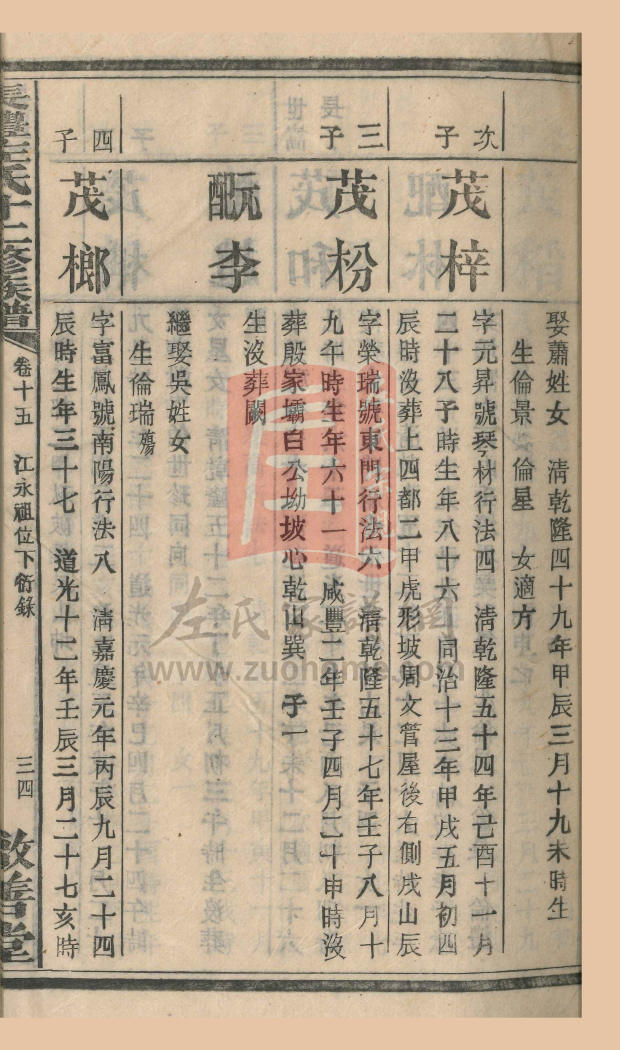 娶蕭姓女 清乾隆四十九年甲辰三月十九未時生
生倫景 倫星 女適方
次子
茂梓
字元昇號琴材行法四 清乾隆五十四年己酉十一月
二十八子時生年八十六 同治十三年甲戌五月初四
辰時沒葬上四都二甲虎形坡周文管屋後右側戌山辰
三子
茂枌
字榮瑞號東門行法六 清乾隆五十七年壬子八月十
九午時生年六十一 咸豐二年壬子四月二十申時沒
葬殷家壩白公坳坡心乾山巽 子一
配阮李
生沒葬闕
繼娶吳姓女
生倫瑞殤
四子
茂榔
字富鳳號南陽行法八 清嘉慶元年丙辰九月二十四
辰時生年三十七 道光十二年壬辰三月二十七亥時
長豐左氏十二修族譜
卷十五
江永祖位下衍錄
三四
敦善堂
左氏家譜網
www.zuohome.com